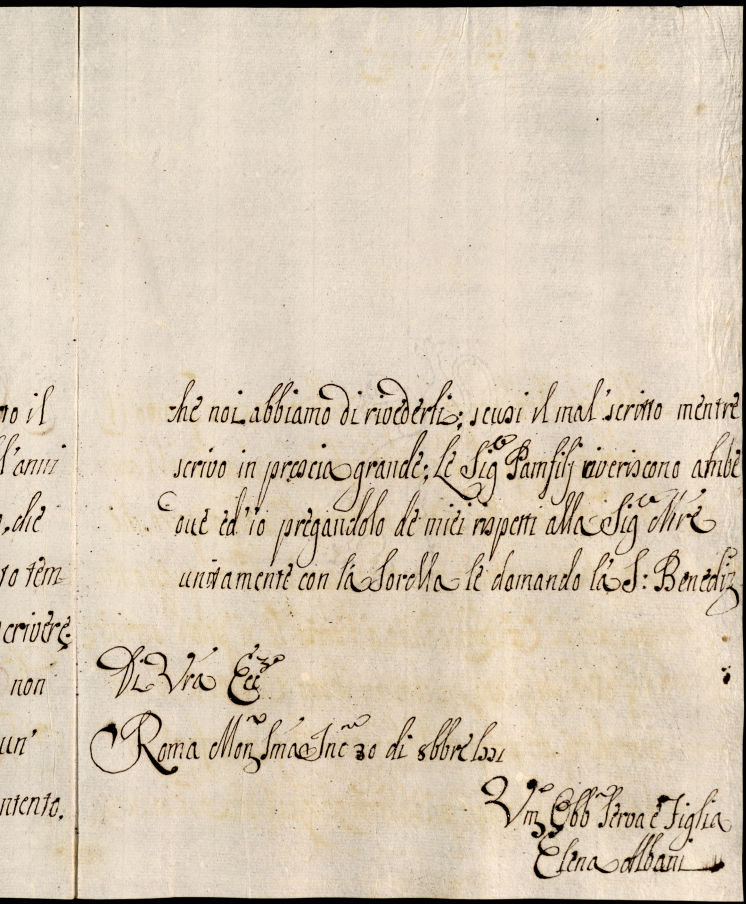 no il
l'anni
che
to tem-
scrivere;
non
un'
ntento.
che noi abbiamo di rivederli; scusi il mal' scritto mentre
scrivo in prescia grande; le Sig.e Pamfilj riveriscono ambe
due ed' io pregandolo de miei rispetti alla Sig.a Mře
unitamente con la Sorella le domando la S: Benediz
Di Vřa Ecc.za
Roma Mon.ro S̃ma Inc.ne 30 di 8bbre
Um.a Obb.ma Serva e Figlia
Elena Albani